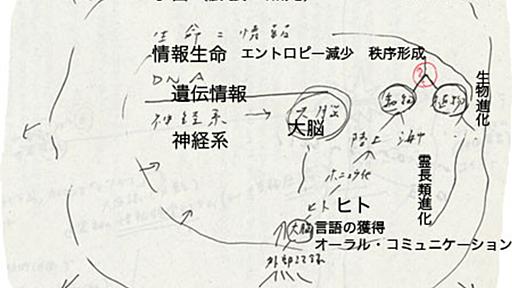 生命＝情報
情報生命 エントロピー減少 秩序形成
DNA
遺伝情報
神経系
大脳
大脳
神経系
動物
植物
陸上
海中
生物進化
霊長類進化
ホニュウ化
ヒト
ヒト
大脳
言語の獲得
オーラル・コミュニケーション